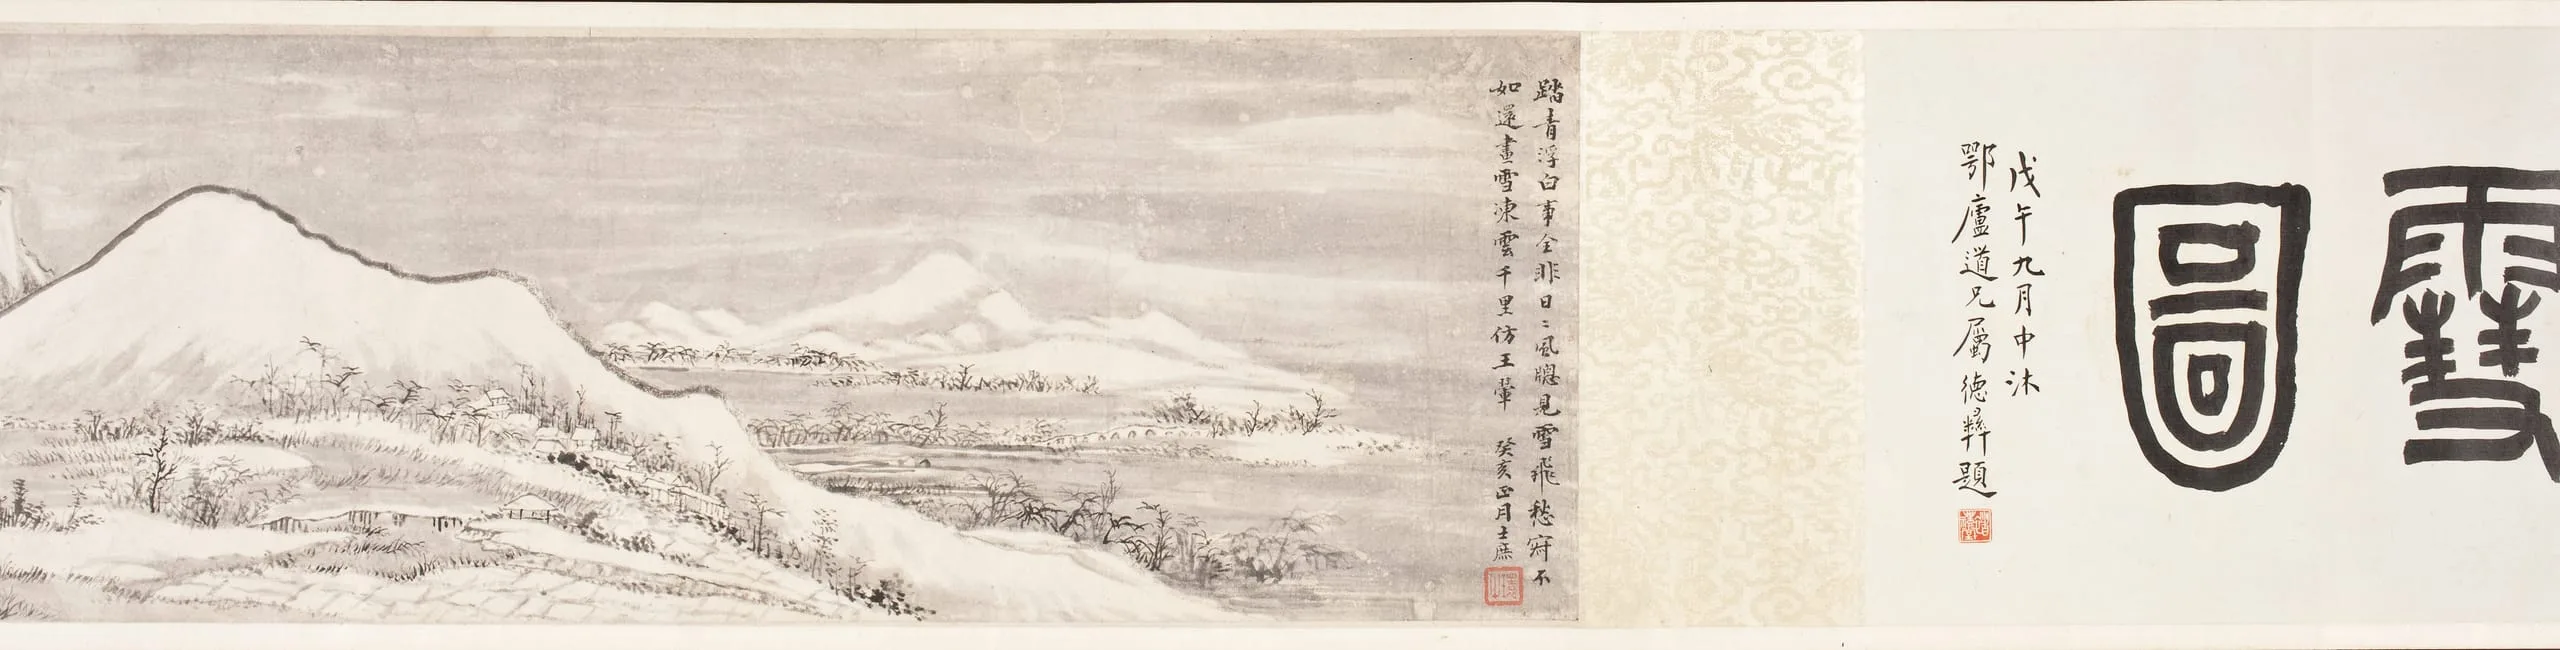 雪圖
戊午九月中沐
鄂廬道兄屬德彝題
踏青浮白事全非日〻風牕見雪飛愁寂不
如還畫雪凍雲千里仿王翬 癸亥正月士標